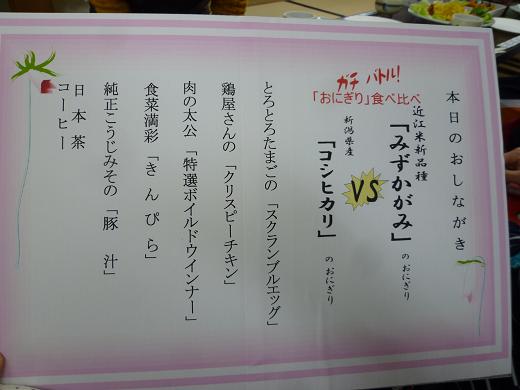 本日のおしながき
ガチ バトル!
「おにぎり」食べ比べ
近江米新品種
「みずかがみ」のおにぎり
VS
新潟県産
「コシヒカリ」のおにぎり
とろとろたまごの「スクランブルエッグ」
鶏屋さんの「クリスピーチキン」
肉の太公「特選ボイルドウインナー」
食菜満彩「きんぴら」
純正こうじみその「豚 汁」
日本茶
コーヒー